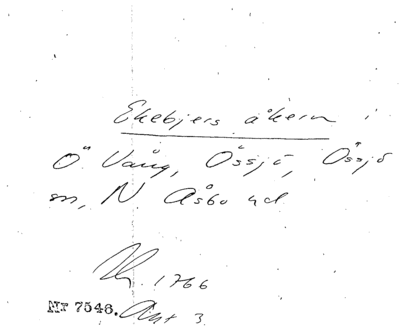 Ekebjers åkern i
Ö Vång, Össjö, Össjö
sn, N Åsbo hd
1766
Nr 7546. Akt 3